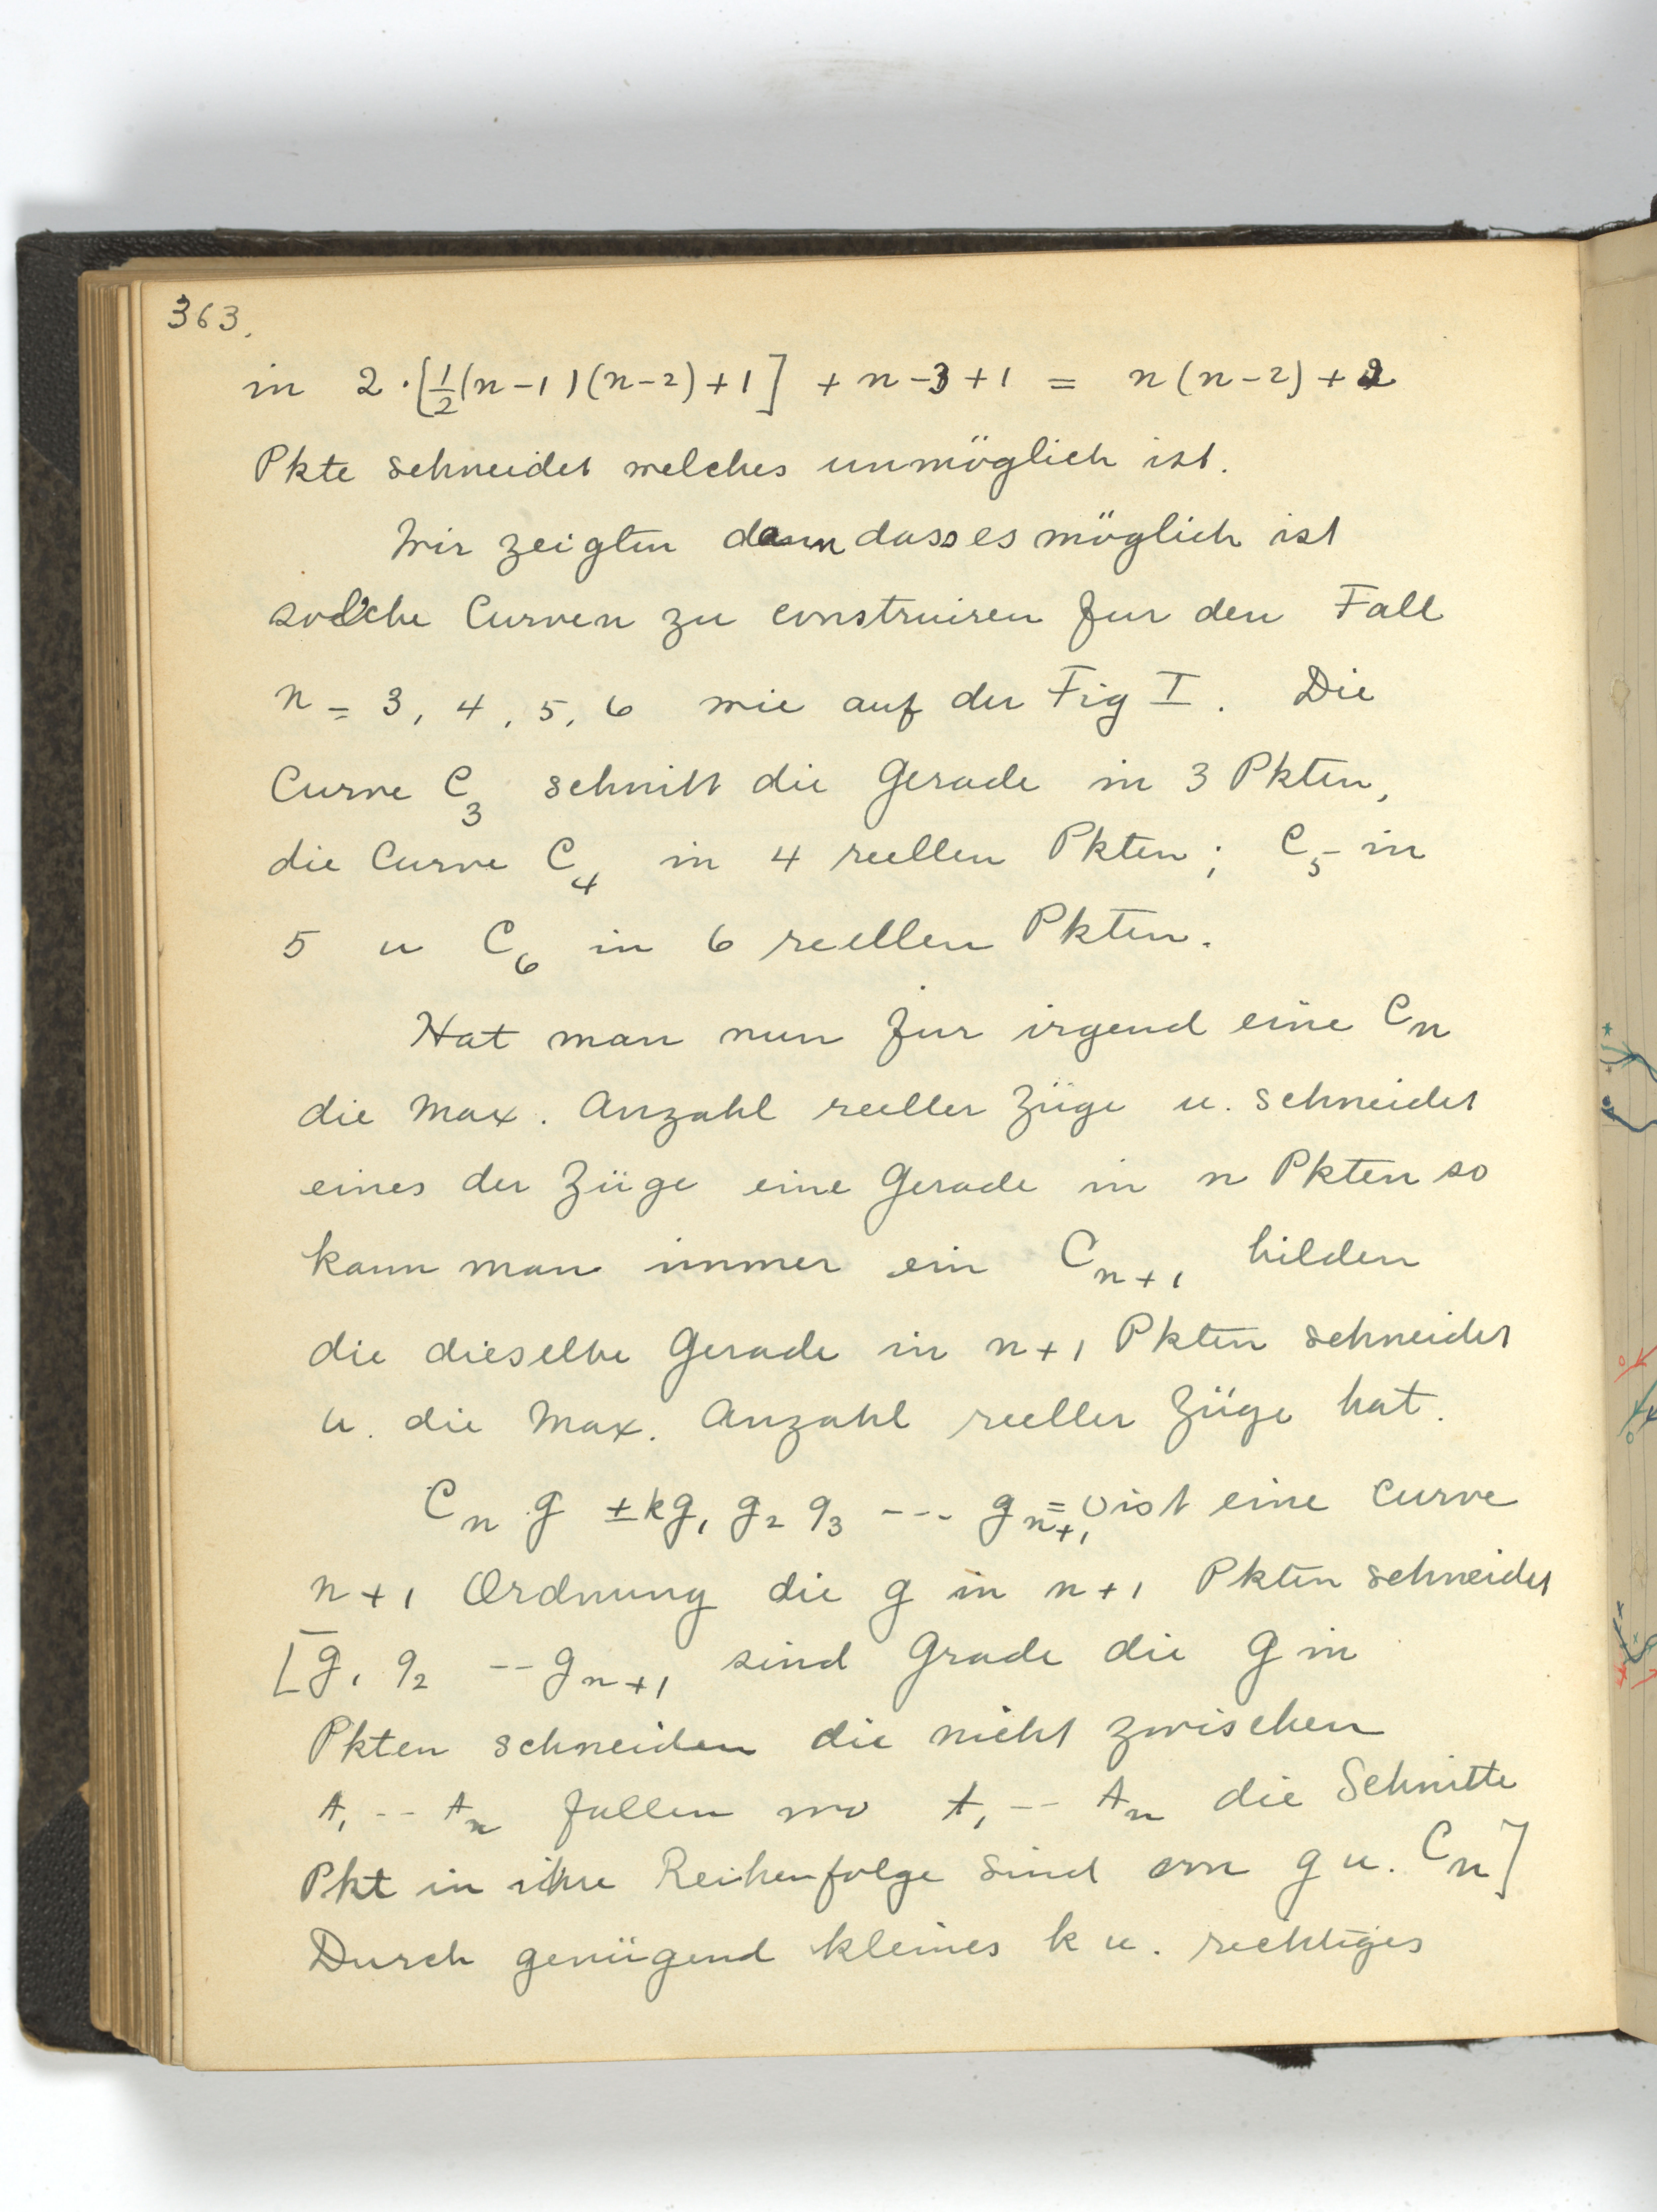 363.
in 2 · [½(n-1)(n-2)+1] + n-3+1 = n(n-2)+2
Pkte schneidet welches unmöglich ist.
Wir zeigten dann dass es möglich ist
solche Curven zu construiren fur den Fall
n = 3, 4, 5, 6 wie auf der Fig I. Die
Curve C₃ schnitt die Gerade in 3 Pkten,
die Curve C₄ in 4 reellen Pkten; C₅ in
5 u C₆ in 6 reellen Pkten.
Hat man nun fur irgend eine Cₙ
die Max. Anzahl reeller Züge u. schneidet
eines der Züge eine Gerade in n Pkten so
kann man immer ein Cₙ₊₁ bilden
die dieselbe Gerade in n+1 Pkten schneidet
u. die Max. Anzahl reeller Züge hat.
Cₙ g ± k g₁ g₂ g₃ --- gₙ₊₁ = 0 ist eine Curve
n+1 Ordnung die g in n+1 Pkten schneidet
[g₁ g₂ -- gₙ₊₁ sind Grade die g in
Pkten schneiden die nicht zwischen
A₁ -- Aₙ fallen wo A₁ -- Aₙ die Schnitte
Pkt in ihre Reihenfolge sind von g u. Cₙ]
Durch genügend kleines k u. richtiges